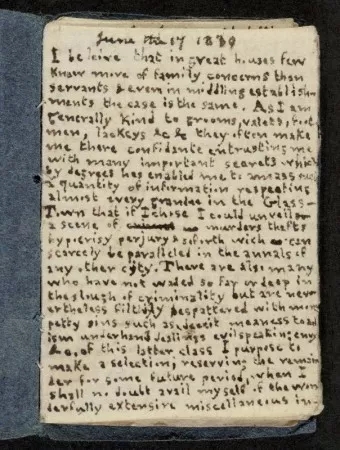 June the 17 1830
I beleive that in great houses few
know more of family concerns than
servants & even in middling establish
ments the case is the same. As I am
generally kind to grooms, valets, foot
men, lackeys &c &c they often make
me there confidante entrusting me
with many important secrets which
by degrees has enabled me to amass such
a quantity of information respecting
almost every grandee in the Glass-
Town that if I chose I could unveil
a scene of murders thefts
hypicrisy perjury & so forth wich can
scarcely be paralleled in the annals of
any other city. There are also many
who have not waded so far or deep in
the slough of criminality but are nev-
ertheless filthily bespattered with more
petty sins such as deceit meaness toad
iism underhand dealings evil speaking envy
&c. of this latter class I purpose to
make a selection, reserving the remain
der for some future period, when I
shall no doubt avail myself of the won
derfully extensive miscellaneous in-